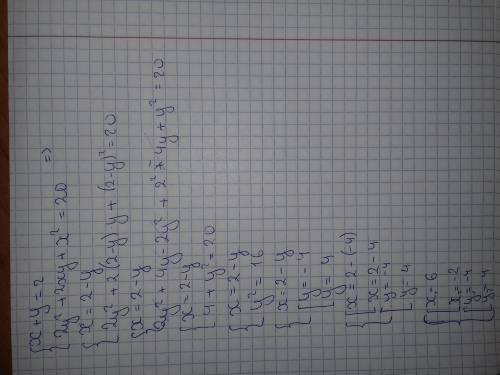 {x+y=2
{2y²+2xy+x²=20 =>
{x=2-y
{2y²+2(2-y)y+(2-y)²=20
{x=2-y
{2y²+4y-2y²+2²-4y+y²=20
{x=2-y
{4+y²=20
{x=2-y
{y²=16
{x=2-y
{[y=-4
[y=4
{[x=2-(-4)
[x=2-4
{[y=-4
[y=4
{[x=6
[x=-2
{[y=-4
[y=4